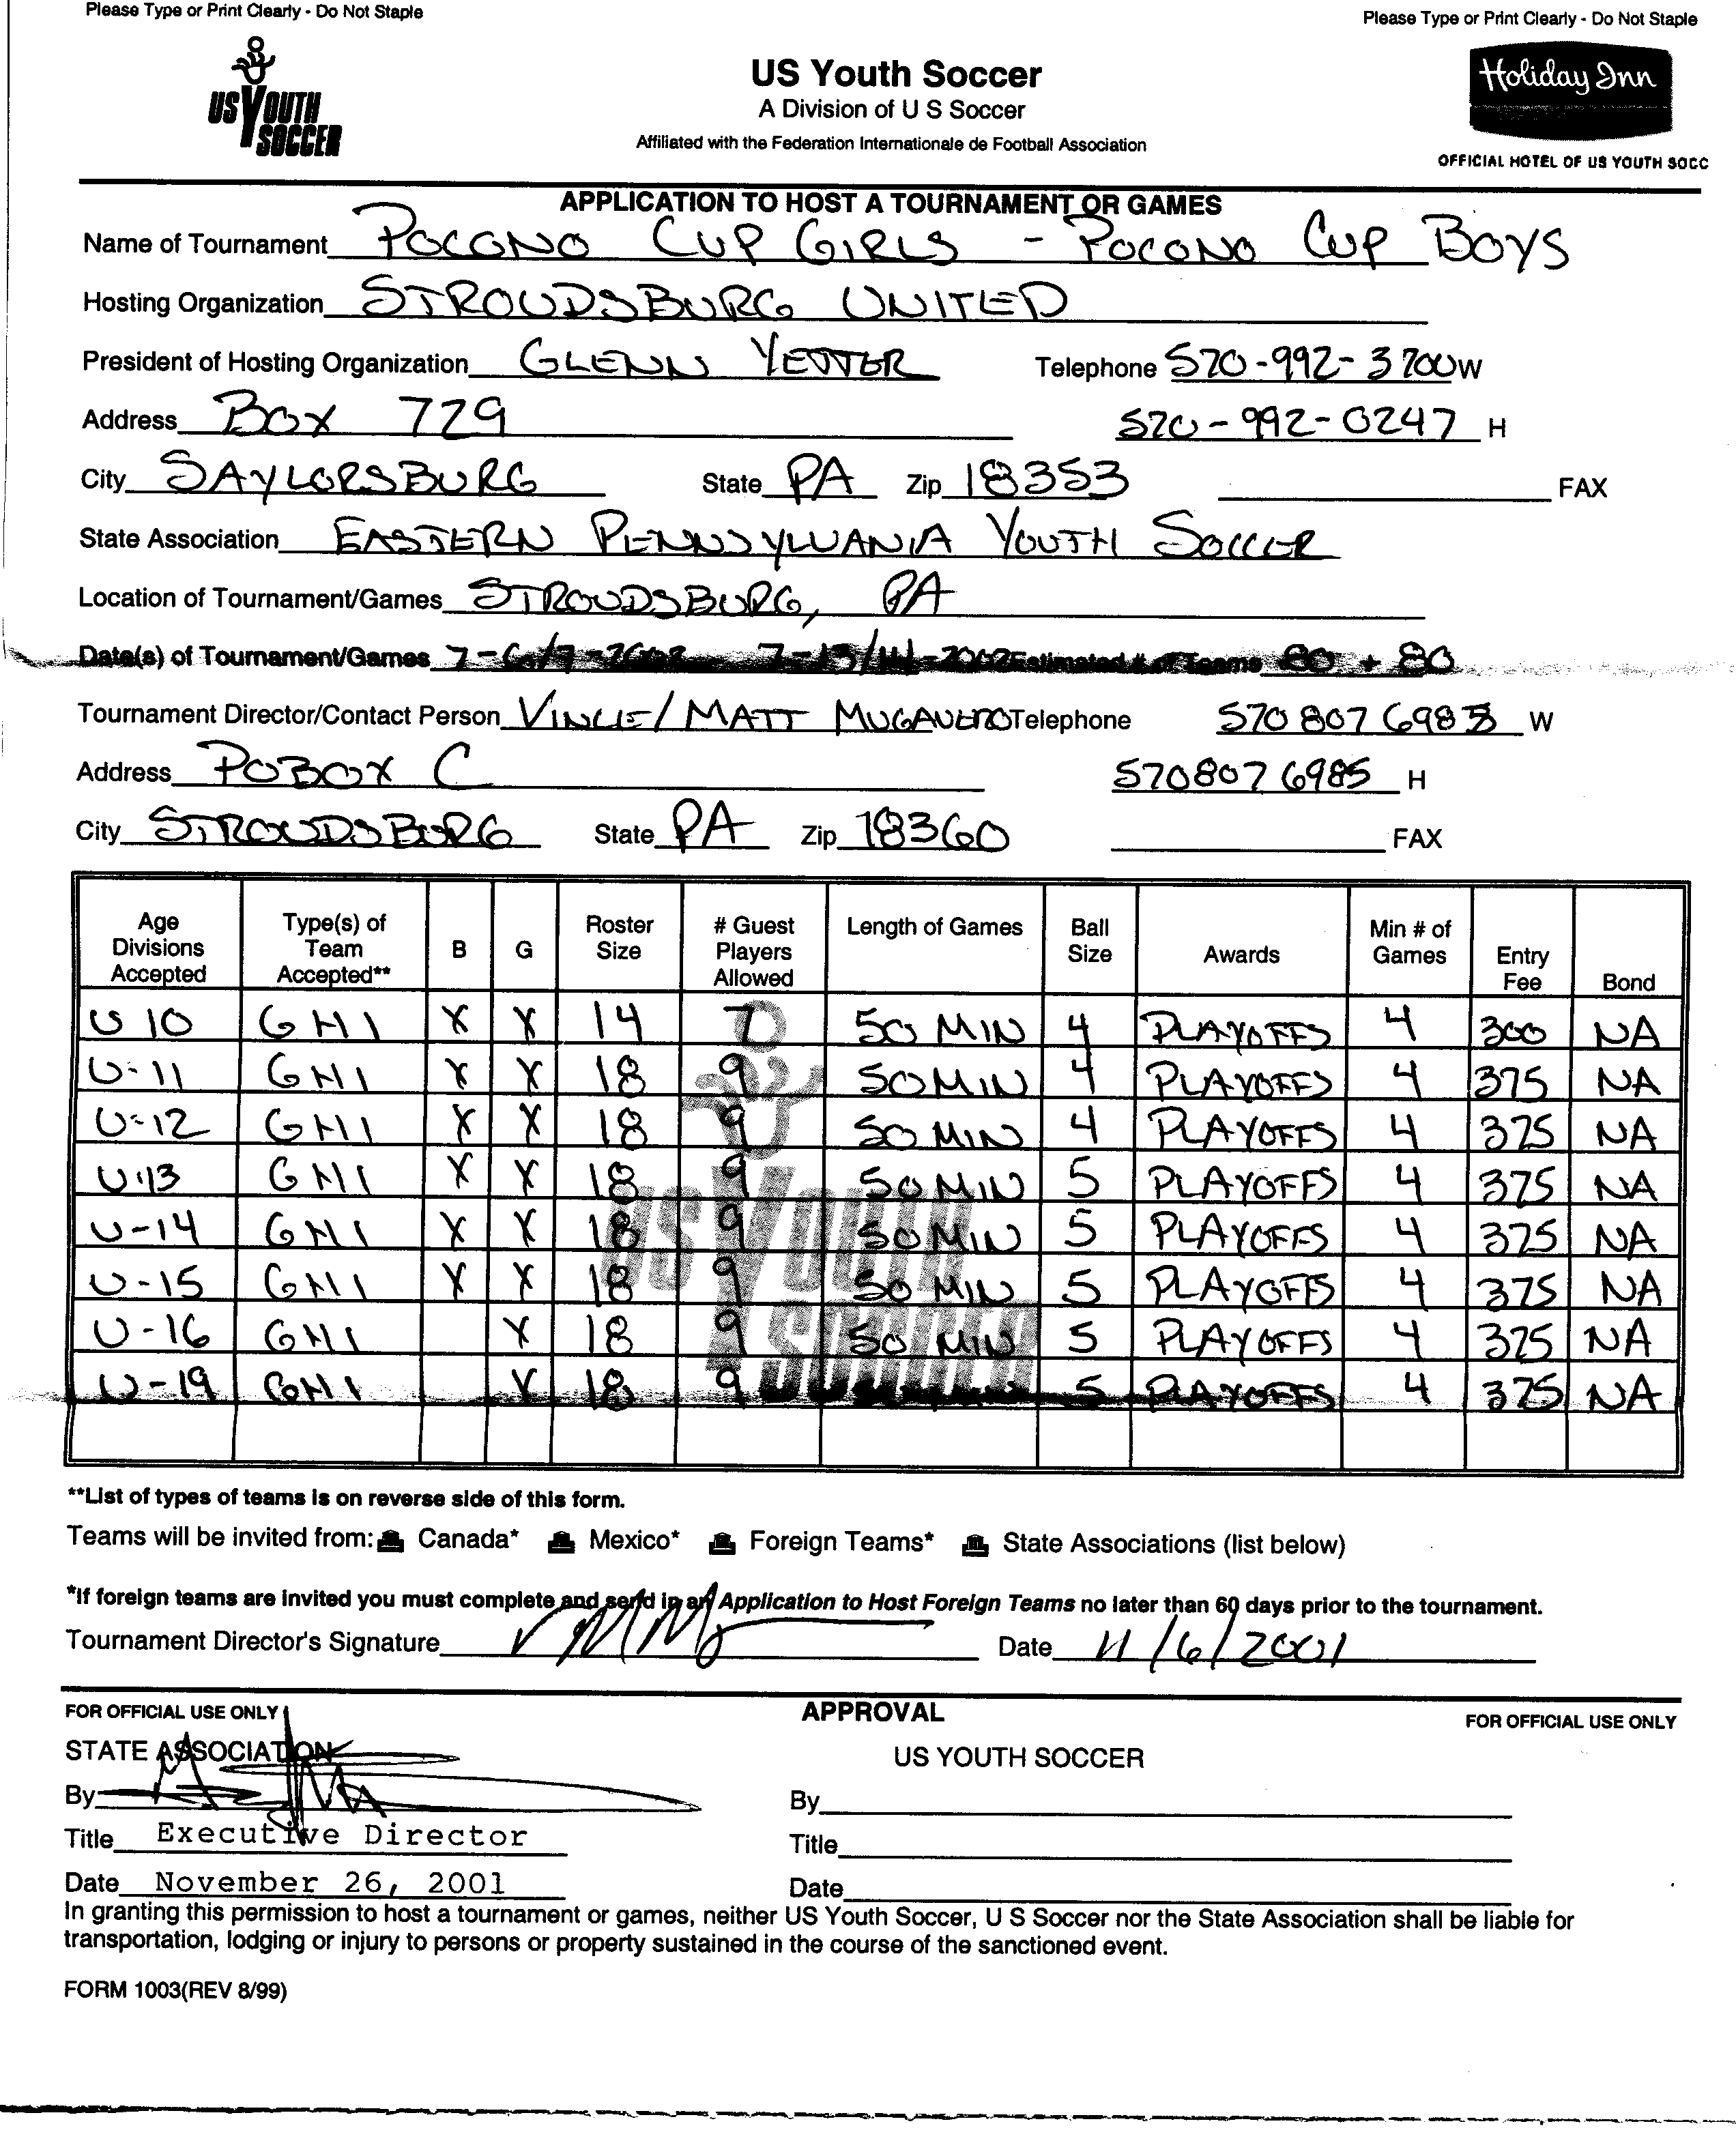 Please Type or Print Clearly - Do Not Staple
Please Type or Print Clearly - Do Not Staple
US YOUTH SOCCER
US Youth Soccer
A Division of U S Soccer
Affiliated with the Federation Internationale de Football Association
Holiday Inn
OFFICIAL HOTEL OF US YOUTH SOCC
APPLICATION TO HOST A TOURNAMENT OR GAMES
Name of Tournament POCONO CUP GIRLS - POCONO CUP BOYS
Hosting Organization STROUDSBURG UNITED
President of Hosting Organization GLENN YETTER Telephone 570-992-3700 W
Address BOX 729 570-992-0247 H
City SAYLORSBURG State PA Zip 18353 FAX
State Association EASTERN PENNSYLVANIA YOUTH SOCCER
Location of Tournament/Games STROUDSBURG, PA
Date(s) of Tournament/Games 7-6/7-2002 7-13/14-2002 Estimated # of Teams 80 + 80
Tournament Director/Contact Person VINCE/MATT MUGAVERO Telephone 570 807 6983 W
Address PO BOX C 570 807 6985 H
City STROUDSBURG State PA Zip 18360 FAX
Age Divisions Accepted Type(s) of Team Accepted** B G Roster Size # Guest Players Allowed Length of Games Ball Size Awards Min # of Games Entry Fee Bond
U 10 GHI X X 14 7 50 MIN 4 PLAYOFFS 4 300 NA
U-11 GHI X X 18 9 50 MIN 4 PLAYOFFS 4 375 NA
U-12 GHI X X 18 9 50 MIN 4 PLAYOFFS 4 375 NA
U-13 GHI X X 18 9 50 MIN 5 PLAYOFFS 4 375 NA
U-14 GHI X X 18 9 50 MIN 5 PLAYOFFS 4 375 NA
U-15 GHI X X 18 9 50 MIN 5 PLAYOFFS 4 375 NA
U-16 GHI X 18 9 50 MIN 5 PLAYOFFS 4 375 NA
U-19 GHI X 18 9 5 PLAYOFFS 4 375 NA
US YOUTH SOCCER
**List of types of teams is on reverse side of this form.
Teams will be invited from: Canada* Mexico* Foreign Teams* State Associations (list below)
*If foreign teams are invited you must complete and send in an Application to Host Foreign Teams no later than 60 days prior to the tournament.
Tournament Director's Signature Date 11/6/2001
FOR OFFICIAL USE ONLY APPROVAL FOR OFFICIAL USE ONLY
STATE ASSOCIATION US YOUTH SOCCER
By By
Title Executive Director Title
Date November 26, 2001 Date
In granting this permission to host a tournament or games, neither US Youth Soccer, U S Soccer nor the State Association shall be liable for
transportation, lodging or injury to persons or property sustained in the course of the sanctioned event.
FORM 1003(REV 8/99)